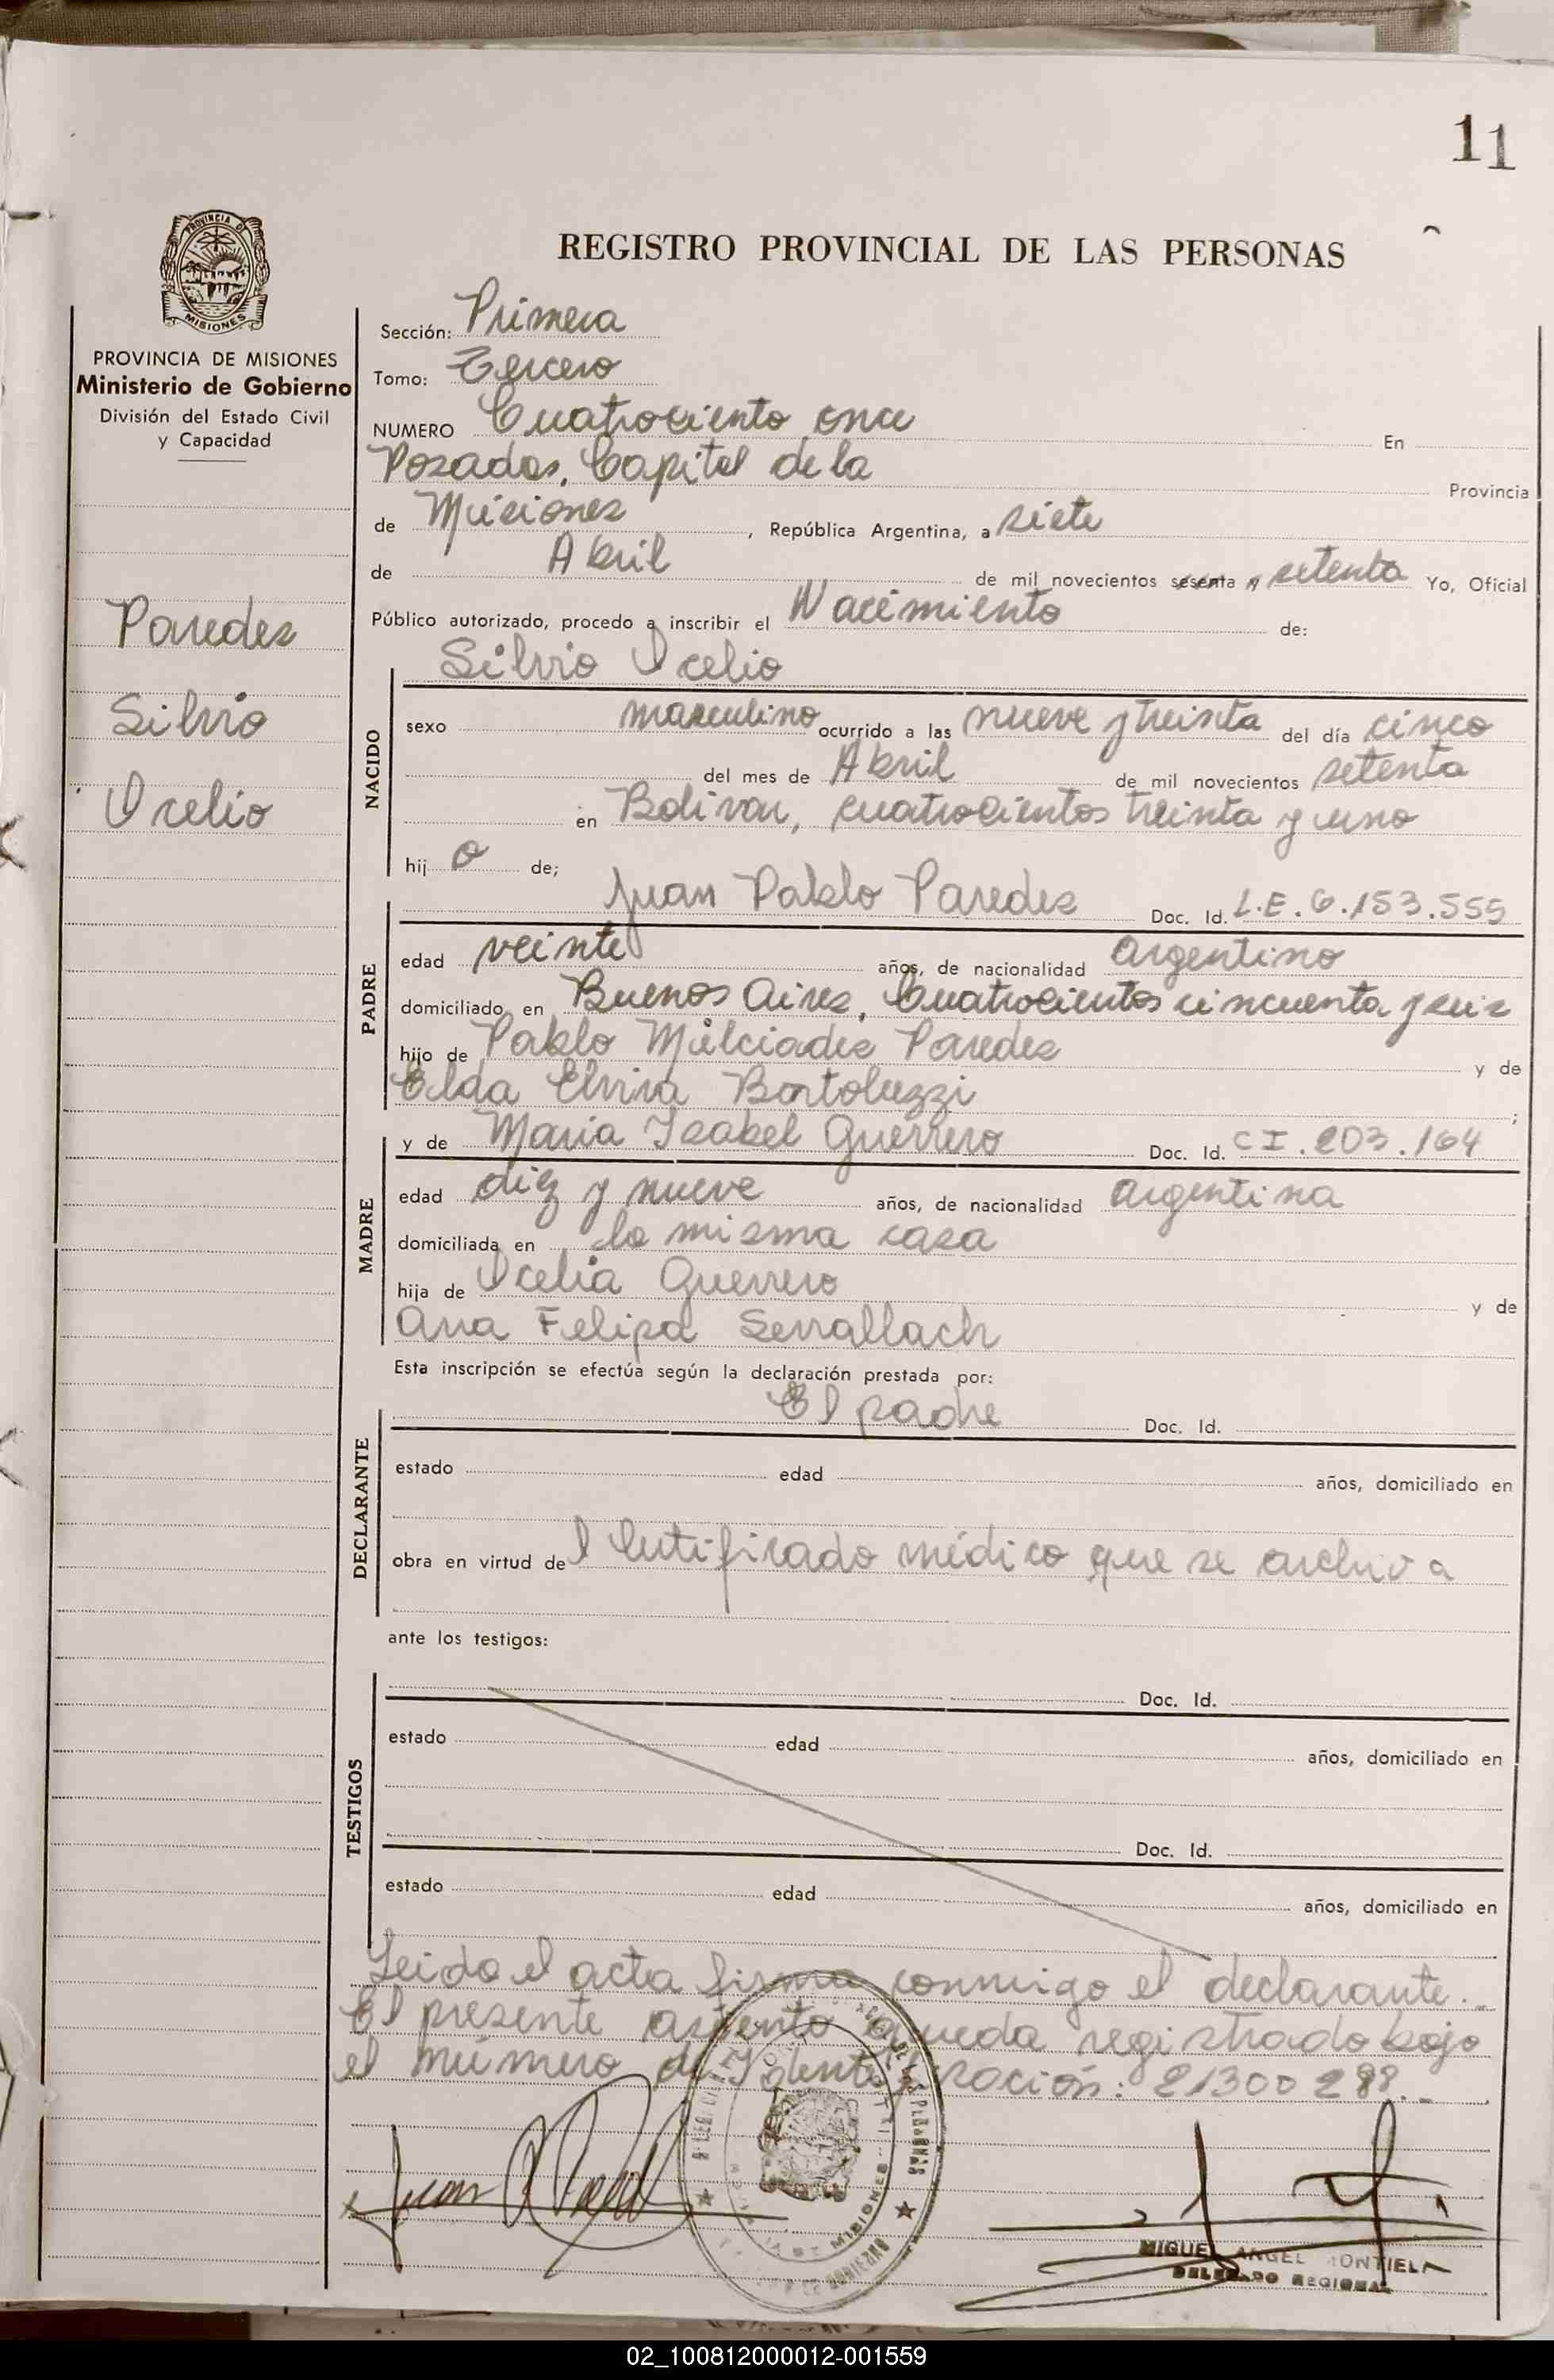 11
REGISTRO PROVINCIAL DE LAS PERSONAS
PROVINCIA DE
MISIONES
PROVINCIA DE MISIONES
Ministerio de Gobierno
División del Estado Civil
y Capacidad
Paredes
Silvio
Icelio
Sección: Primera
Tomo: Tercero
NUMERO Cuatrociento once En
Posadas, Capital de la Provincia
de Misiones, República Argentina, a siete
de Abril de mil novecientos sesenta y setenta Yo, Oficial
Público autorizado, procedo a inscribir el Nacimiento de:
Silvio Icelio
NACIDO
sexo masculino ocurrido a las nueve y treinta del día cinco
del mes de Abril de mil novecientos setenta
en Bolivar, cuatrocientos treinta y uno
hijo de;
Juan Pablo Paredes Doc. Id. L.E. 6.153.555
PADRE
edad veinte años, de nacionalidad argentino
domiciliado en Buenos Aires, Cuatrocientos cincuenta y seis
hijo de Pablo Milciades Paredes y de
Elda Elvira Bortoluzzi ;
y de Maria Isabel Guerrero Doc. Id. CI. 203.164
MADRE
edad diez y nueve años, de nacionalidad argentina
domiciliada en la misma casa
hija de Icelia Guerrero y de
Ana Felipa Serrallach
Esta inscripción se efectúa según la declaración prestada por:
El padre Doc. Id.
DECLARANTE
estado edad años, domiciliado en
obra en virtud del Certificado médico que se archiva
ante los testigos:
TESTIGOS
Doc. Id.
estado edad años, domiciliado en
Doc. Id.
estado edad años, domiciliado en
Leido el acta firma conmigo el declarante.
El presente asiento queda registrado bajo
el número de Identificación: 21300298.
Juan P Pared
MISIONES
MIGUEL ANGEL MONTIEL
DELEGADO REGIONAL
02_100812000012-001559